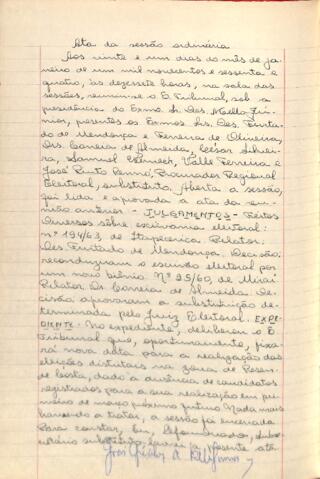 Ata da sessão ordinária
Aos vinte e um dias do mês de ja-
neiro de um mil novecentos e sessenta e
quatro, às dezessete horas, na sala das
sessões, reuniu-se o Tribunal, sob a
presidência do Exmo. Sr. Des. Mello Jú-
nior, presentes os Exmos. Srs. Des. Furta-
do de Mendonça e Ferreira de Oliveira,
Drs. Correia de Almeida, César Silvei-
ra, Samuel Valle Ferreira e
José Pinto Renno, Procurador Regional
Eleitoral, substituto. Aberta a sessão,
foi lida e aprovada a ata da reu-
nião anterior - JULGAMENTOS - Feitos
Diversos sobre escrivania eleitoral:
nº 194/63, de Itapecerica. Relator:
Des. Furtado de Mendonça. Decisão:
reconduziram o escrivão eleitoral por
um mais biênio. Nº 25/60, de Miraí
Relator Dr. Correia de Almeida. De-
cisão: aprovaram a substituição de-
terminada pelo Juiz Eleitoral. EXPE-
DIENTE - No expediente, deliberou o E.
Tribunal que, oportunamente, fixa-
rá nova data para a realização das
eleições distritais na zona de Resen-
de Costa, dado a ausência de candidatos
registrados para a sua realização em pri-
meiro de março próximo futuro. Nada mais
havendo a tratar, a sessão foi encerrada
Para constar, Eu, Secre-
tário substituto, lavrei a presente ata